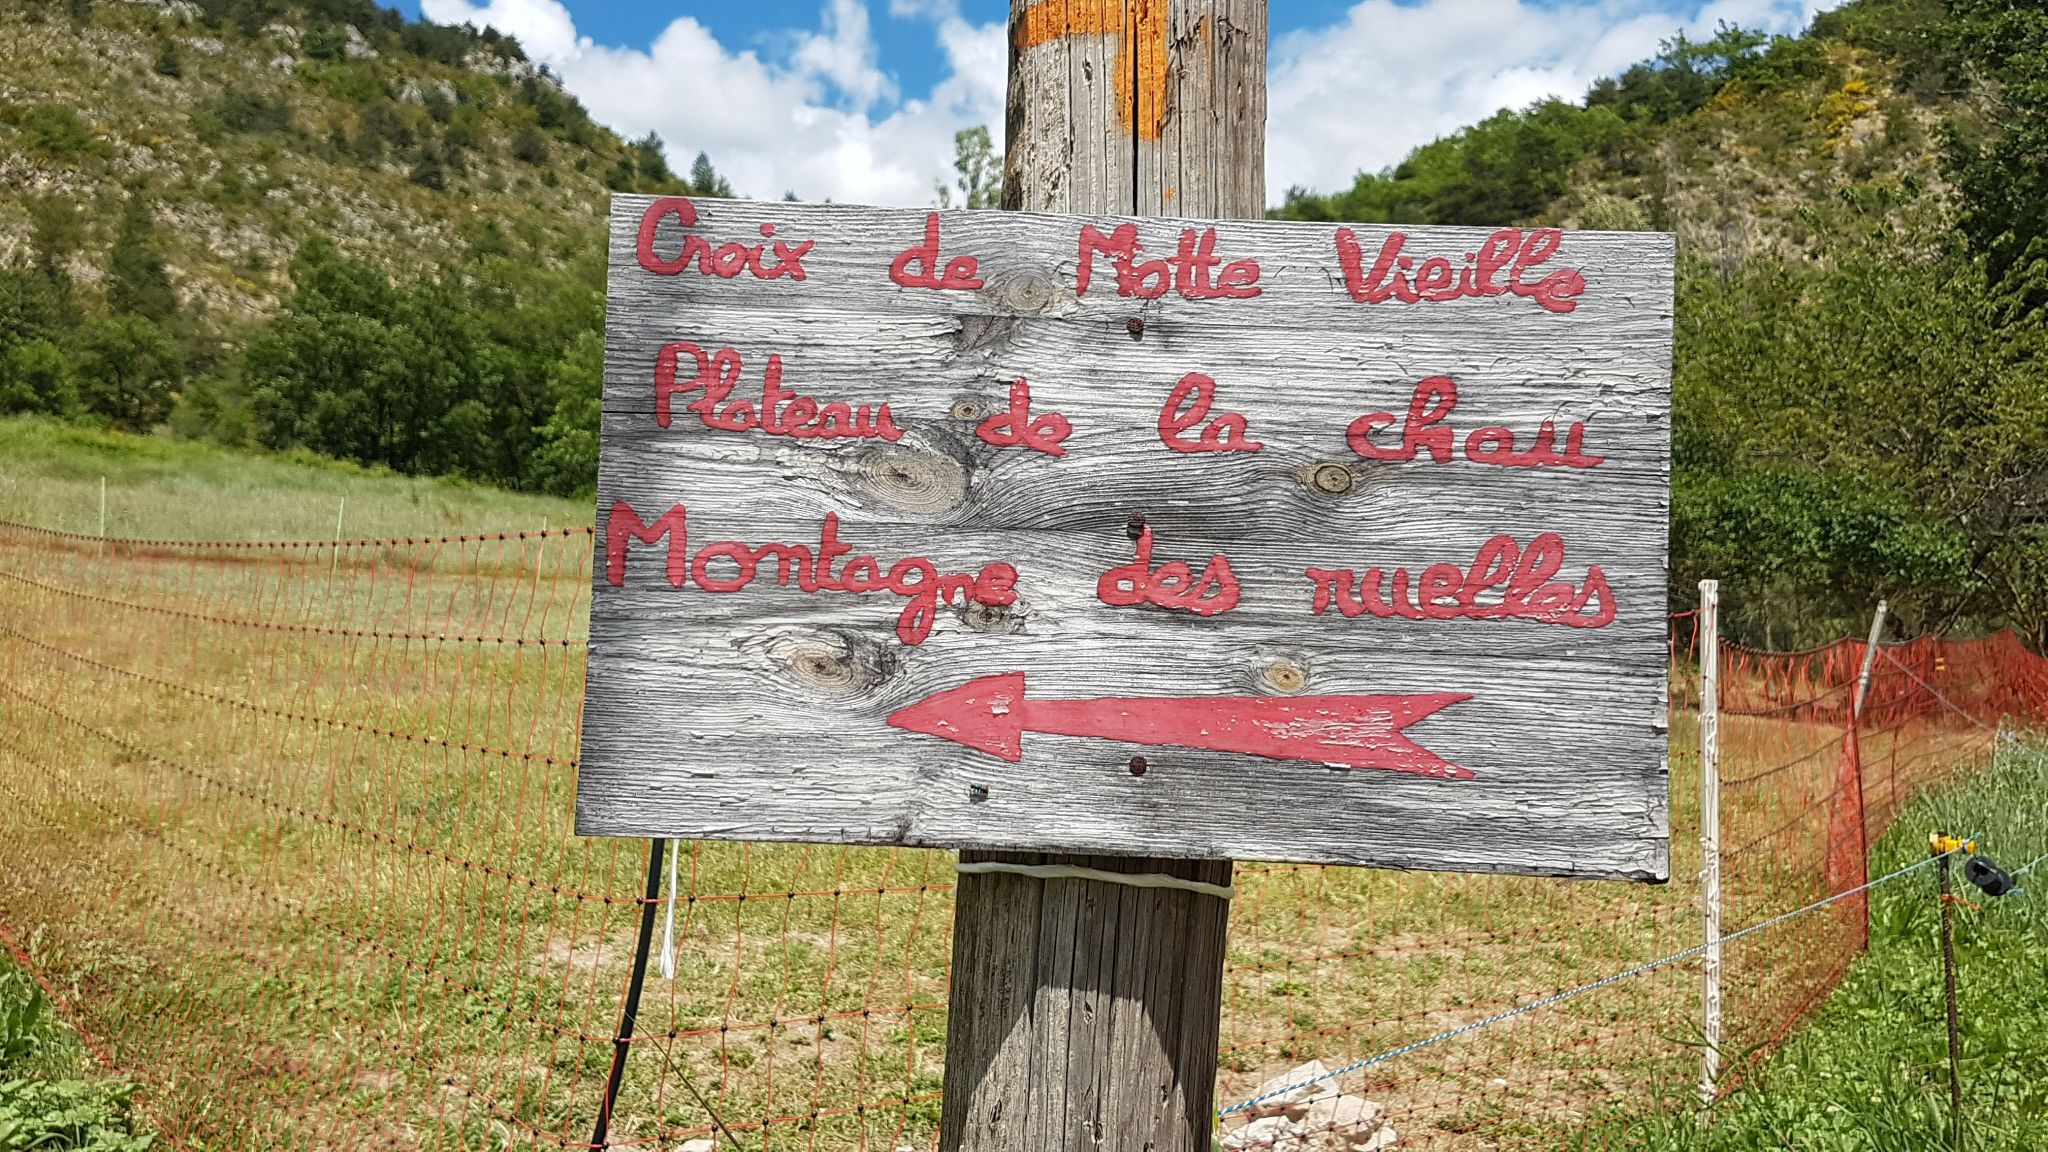 Croix de Motte Vieille
Plateau de la chau
Montagne des ruelles